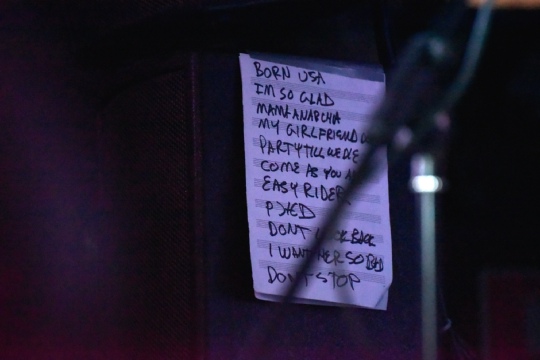 BORN USA
IM SO GLAD
MAMA ANARCHIA
MY GIRLFRIEND
PARTY TILL WE DIE
COME AS YOU
EASY RIDER
DONT BACK
I WANT HER SO BAD
DON'T STOP